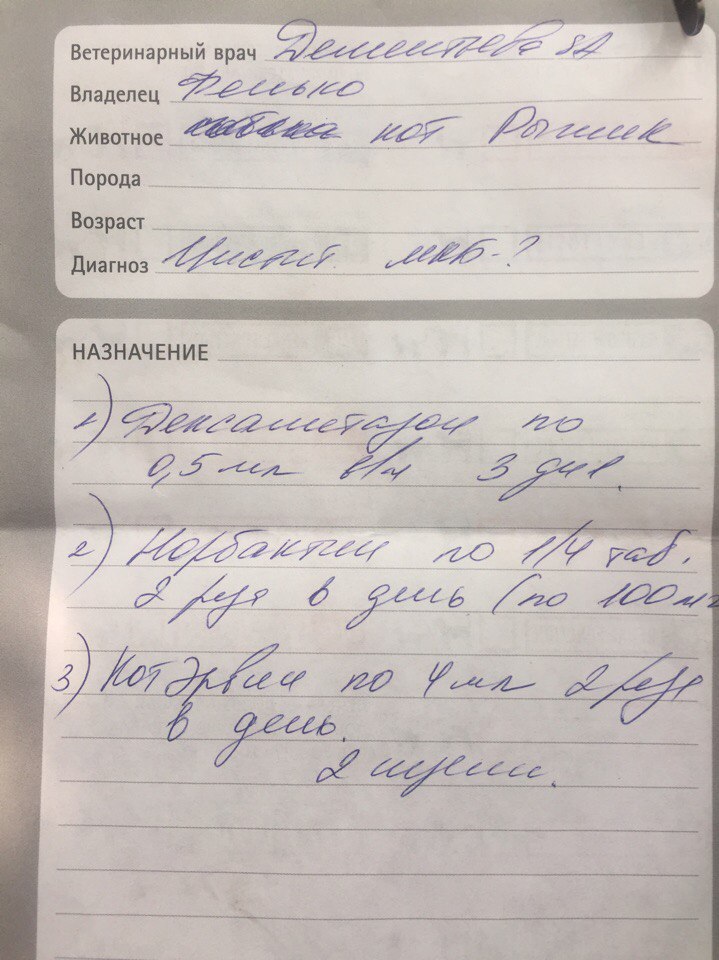 Ветеринарный врач Дементьева
Владелец Фенько
Животное кот Рыжик
Порода
Возраст
Диагноз Цистит. мкб-?
НАЗНАЧЕНИЕ
1) Дексаметазон по
0,5 мл в/м 3 дня.
2) Норбактин по 1/4 таб.
2 раза в день (по 100 мг
3) КотЭрвин по 4 мл 2 раза
в день.